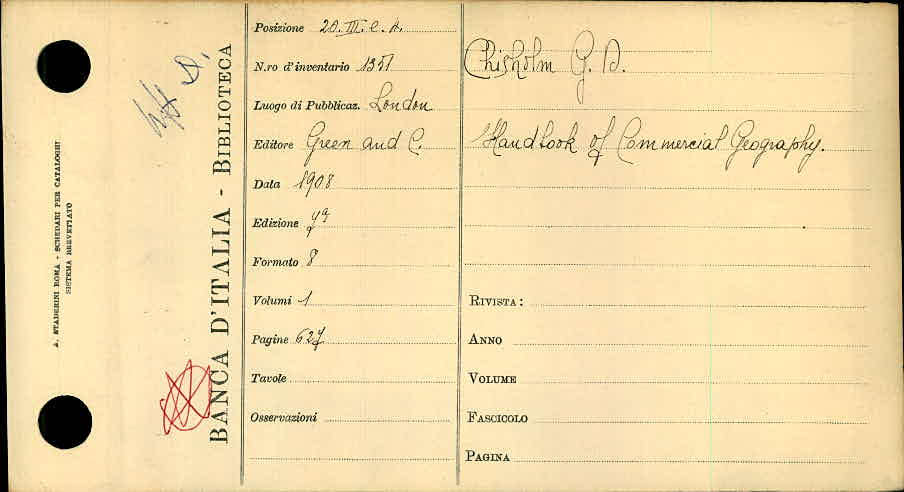 A. STADERINI ROMA - SCHEDARI PER CATALOGHI
SISTEMA BREVETTATO
BANCA D'ITALIA - BIBLIOTECA
Posizione 20. III. C. 4.
N.ro d'inventario 1351
Luogo di Pubblicaz. London
Editore Green and C.
Data 1908
Edizione 7ª
Formato 8
Volumi 1
Pagine 627
Tavole
Osservazioni
Chisholm G. D.
Handbook of Commercial Geography.
RIVISTA:
ANNO
VOLUME
FASCICOLO
PAGINA